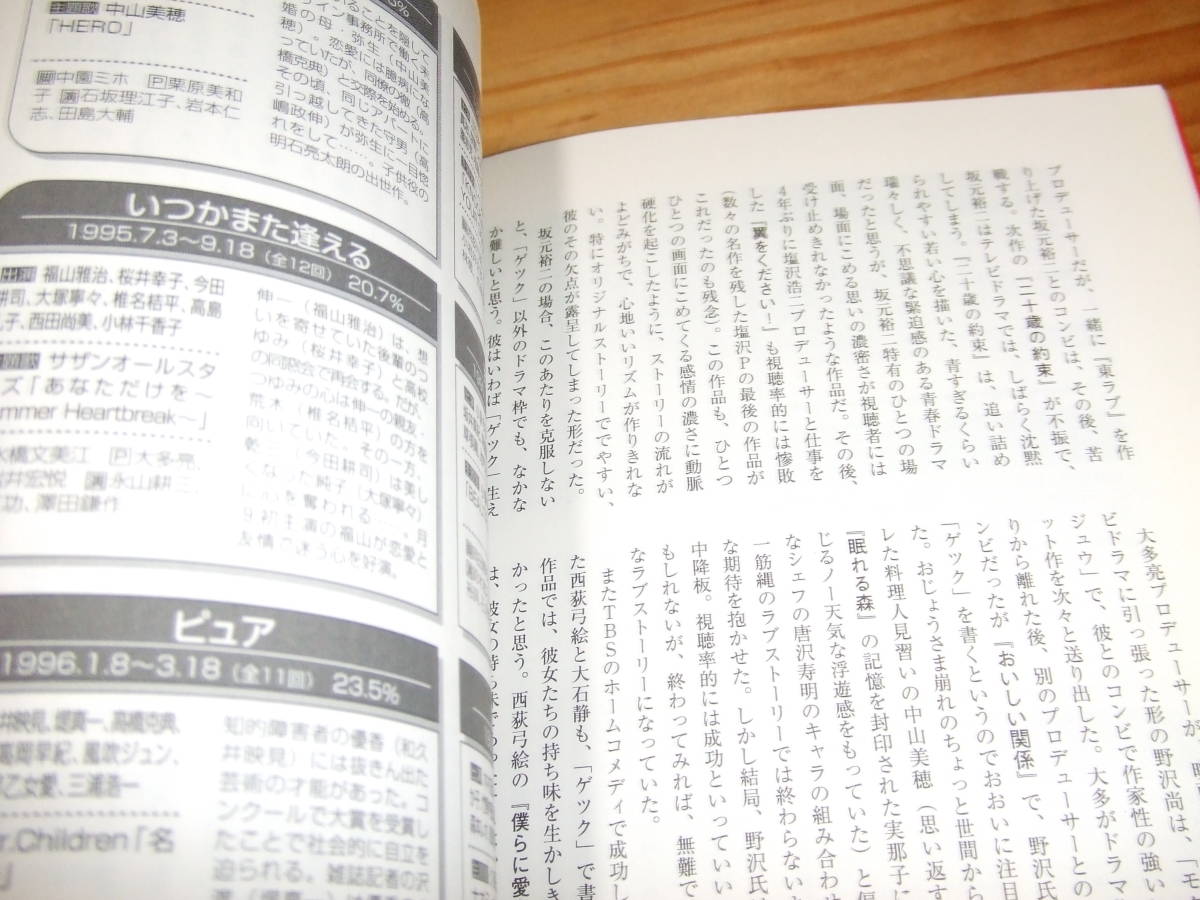 5%
主題歌 中山美穂
「HERO」
脚中園ミホ P栗原美和
子 演石坂理江子、岩本仁
志、田島大輔
いることを隠して
イン事務所で働く未
婚の母・弥生(中山美
穂)。恋愛には臆病にな
っていたが、同僚の徹(高
橋克典)と交際を始める。
その頃、同じアパートに
引っ越してきた守男(高
嶋政伸)が弥生に一目惚
れをして……。子供役の
明石亮太朗の出世作。
いつかまた逢える
1995.7.3〜9.18(全12回) 20.7%
出演 福山雅治、桜井幸子、今田
耕司、大塚寧々、椎名桔平、高島
礼子、西田尚美、小林千香子
主題歌 サザンオールスタ
ーズ「あなただけを〜
Summer Heartbreak〜」
水橋文美江 P大多亮、
井宏悦 演永山耕三、
功、澤田鎌作
伸一(福山雅治)は、想
いを寄せていた後輩のつ
ゆみ(桜井幸子)と高校
の同窓会で再会する。だが、
つゆみの心は伸一の親友、
荒木(椎名桔平)の方へ
向いていた。その一方、
乾(今田耕司)は美し
くなった純子(大塚寧々)
に心を奪われる…。月
9初主演の福山が恋愛と
友情で迷う心を好演。
ピュア
1996.1.8〜3.18(全11回) 23.5%
井映見、堤真一、高橋克典、
高岡早紀、風吹ジュン、
乙女愛、三浦浩一
r.Children「名
」
知的障害者の優香(和久
井映見)には抜きん出た
芸術の才能があった。コ
ンクールで大賞を受賞し
たことで社会的に自立を
迫られる。雑誌記者の沢
渡(堤真一)は優香の
プロデューサーだが、一緒に『東ラブ』を作
り上げた坂元裕二とのコンビは、その後、苦
戦する。次作の『二十歳の約束』が不振で、
坂元裕二はテレビドラマでは、しばらく沈黙
してしまう。『二十歳の約束』は、追い詰め
られやすい若い心を描いた、青すぎるくらい
瑞々しく、不思議な緊迫感のある青春ドラマ
だったと思うが、坂元裕二特有のひとつの場
面、場面にこめる思いの濃密さが視聴者には
受け止めきれなかったような作品だ。その後、
4年ぶりに塩沢浩二プロデューサーと仕事を
した『翼をください!』も視聴率的には惨敗
(数々の名作を残した塩沢Pの最後の作品が
これだったのも残念)。この作品も、ひとつ
ひとつの画面にこめてくる感情の濃さに動脈
硬化を起こしたように、ストーリーの流れが
よどみがちで、心地いいリズムが作りきれな
い。特にオリジナルストーリーでやすい、
彼のその欠点が露呈してしまった形だった。
坂元裕二の場合、このあたりを克服しない
と、「ゲツク」以外のドラマ枠でも、なかな
か難しいと思う。彼はいわば「ゲツク」生え
大多亮プロデューサーが、
ビドラマに引っ張った形の野沢尚は、『モ
ジュウ』で、彼とのコンビで作家性の強い
ット作を次々と送り出した。大多がドラマ
りから離れた後、別のプロデューサーとの
ンビだったが『おいしい関係』で、野沢氏
「ゲツク」を書くというのでおおいに注目
た。おじょうさま崩れのちょっと世間から
した料理人見習いの中山美穂(思い返す
『眠れる森』の記憶を封印された実那子に
じるノー天気な浮遊感をもっていた)と偏
なシェフの唐沢寿明のキャラの組み合わせ
一筋縄のラブストーリーでは終わらない
な期待を抱かせた。しかし結局、野沢氏
中降板。視聴率的には成功といっていい
もしれないが、終わってみれば、無難で
なラブストーリーになっていた。
またTBSのホームコメディで成功し
た西荻弓絵と大石静も、「ゲツク」で書
作品では、彼女たちの持ち味を生かしき
かったと思う。西荻弓絵の『僕らに愛
は、彼女の持ち味であった